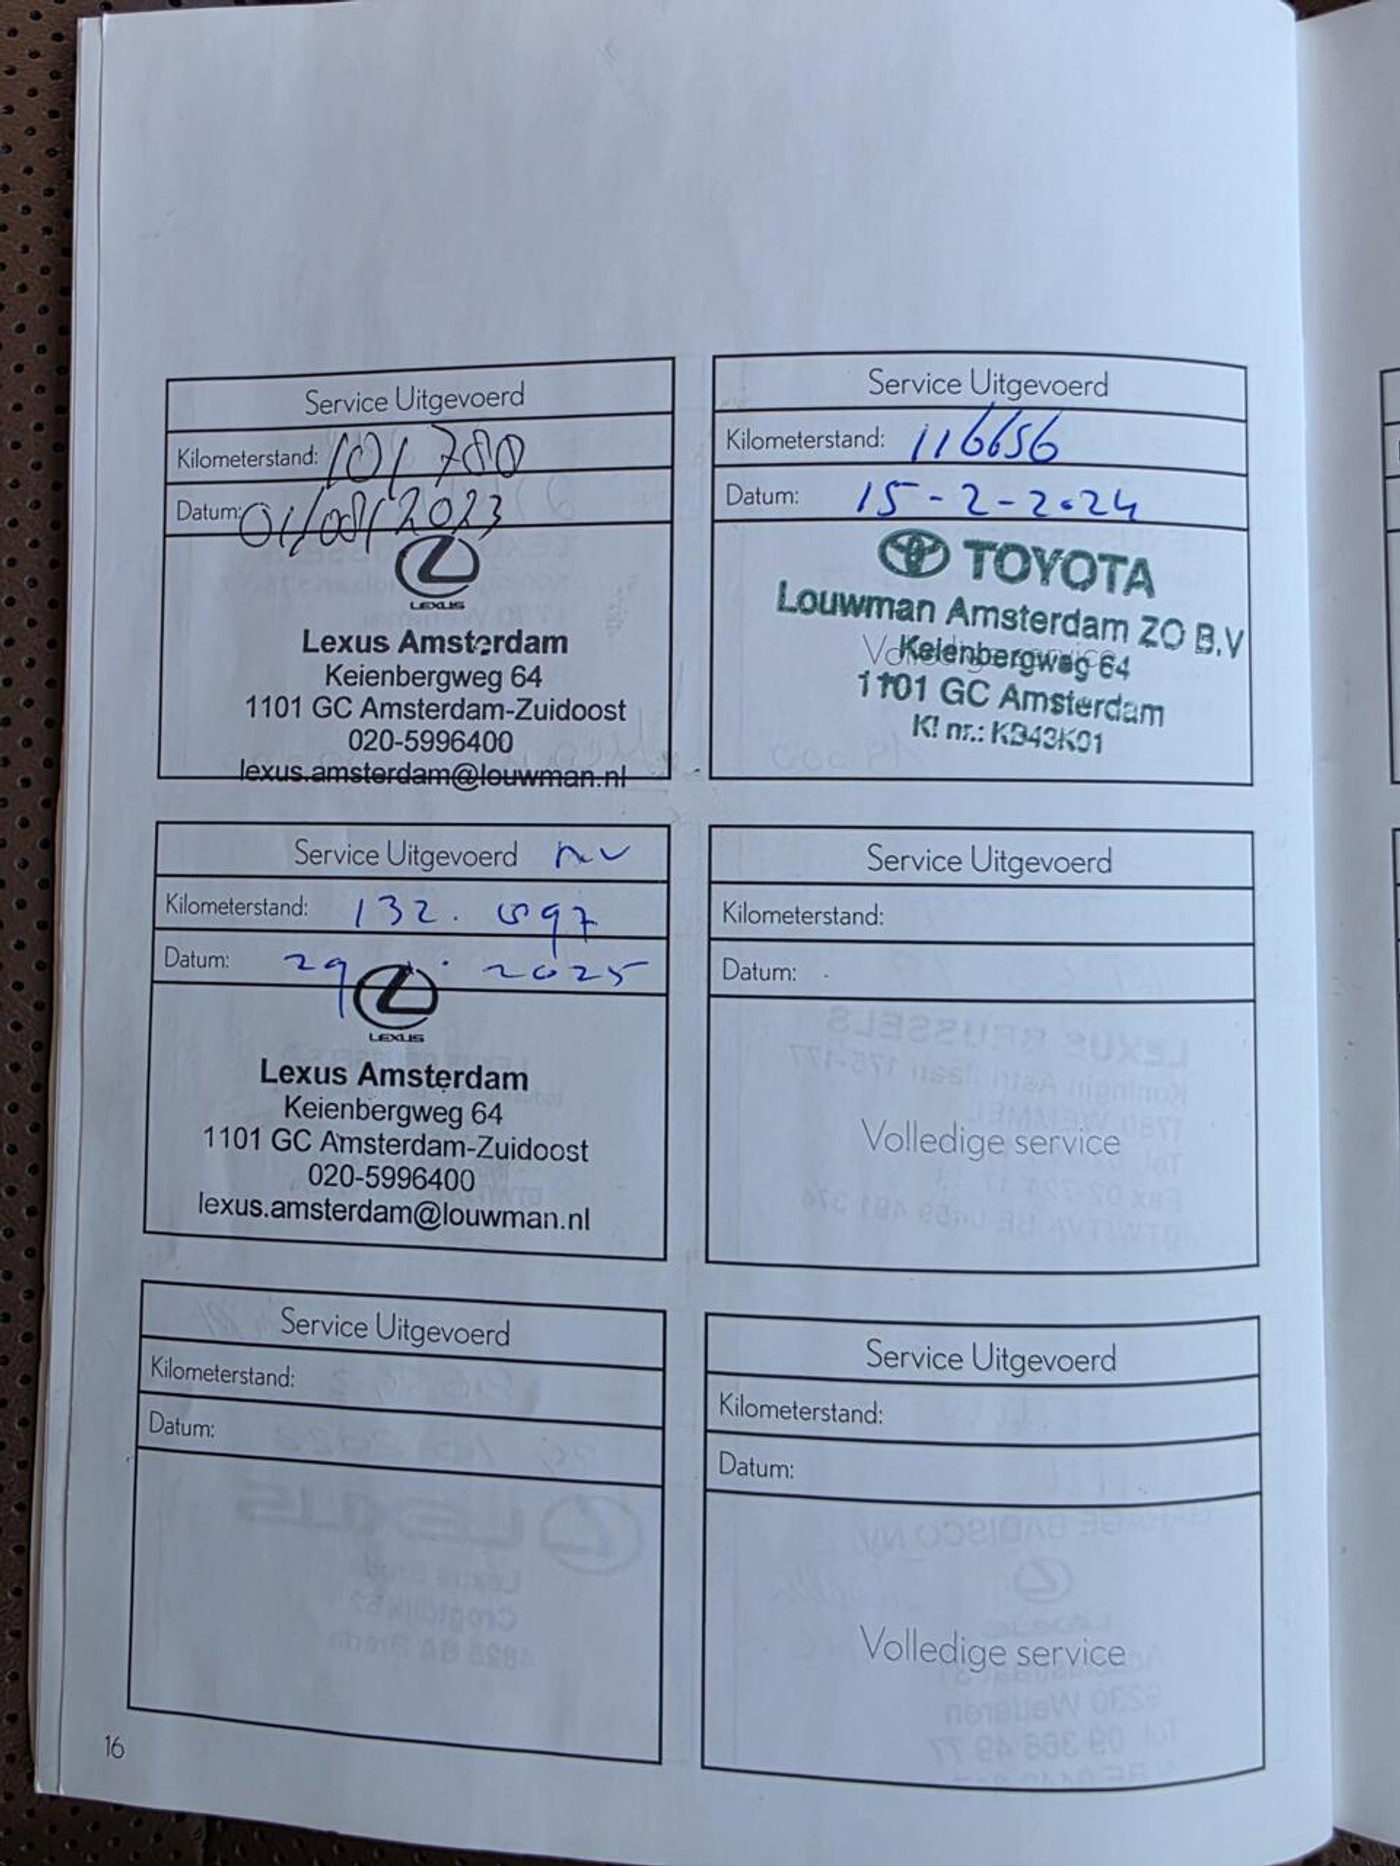 Service Uitgevoerd
Kilometerstand: 101700
Datum: 01/08/2023
LEXUS
Lexus Amsterdam
Keienbergweg 64
1101 GC Amsterdam-Zuidoost
020-5996400
lexus.amsterdam@louwman.nl
Service Uitgevoerd
Kilometerstand: 116656
Datum: 15-2-2024
TOYOTA
Louwman Amsterdam ZO B.V
Keienbergweg 64
1101 GC Amsterdam
KI nr.: KB43K01
Service Uitgevoerd
Kilometerstand: 132.
Datum: 29 2025
LEXUS
Lexus Amsterdam
Keienbergweg 64
1101 GC Amsterdam-Zuidoost
020-5996400
lexus.amsterdam@louwman.nl
Service Uitgevoerd
Kilometerstand:
Datum:
Volledige service
Service Uitgevoerd
Kilometerstand:
Datum:
Service Uitgevoerd
Kilometerstand:
Datum:
Volledige service
16